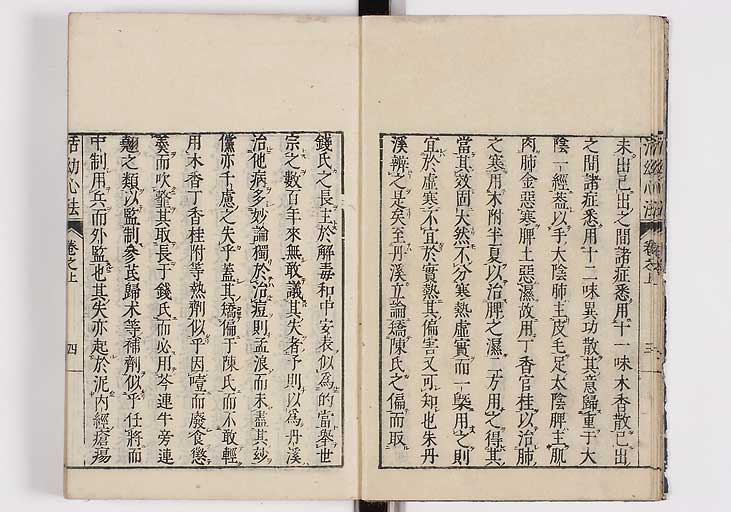 未出已出之間諸症悉用十一味木香散已出
之間諸症悉用十二味異功散其意歸重于太
陰一經蓋以手太陰肺主皮毛足太陰脾主肌
肉肺金惡寒脾土惡濕故用丁香官桂以治肺
之寒用木附半夏以治脾之濕二方用之得其
當其效固大然不分寒熱虛實而一槩用之則
宜於虛寒不宜於實熱其偏害又可知也朱丹
溪辨之是矣至丹溪立論矯陳氏之偏而取
錢氏之長主於解毒和中安表似爲的當舉世
宗之數百年來無敢議其失者予則以爲丹溪
治他病多妙論獨於治痘則孟浪而未盡其妙
儻亦千慮之失乎蓋其矯偏于陳氏而不敢輕
用木香丁香桂附等熱劑似乎因噎而廢食懲
羹而吹虀其取長于錢氏而必用芩連牛旁連
翹之類以監制參芪歸术等補劑似乎任將而
中制用兵而外監也其失亦起於泥内經瘡瘍
活幼心法 卷之上 四